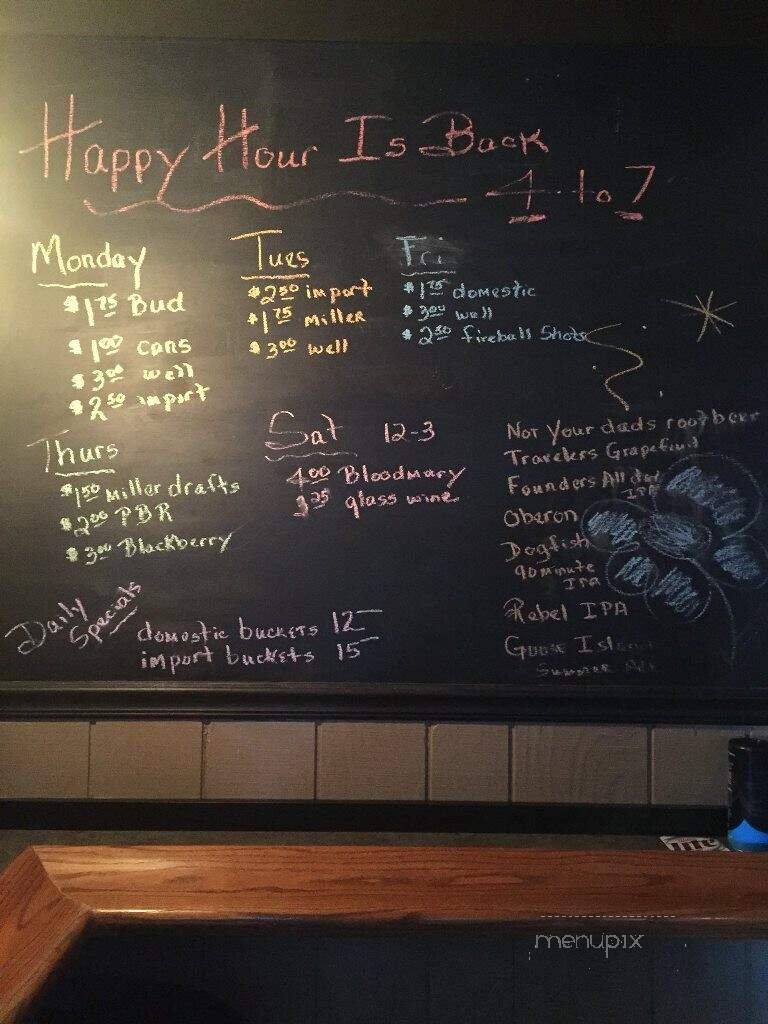 Happy Hour Is Back
4 to 7
Monday
$1 75 Bud
$1 00 cans
$3 00 well
$2 50 import
Tues
$2 50 import
$1 75 Miller
$3 00 well
Fri
$1 75 domestic
$3 00 well
$2 50 fireball Shots
Thurs
$1 50 Miller drafts
$2 00 PBR
$3 00 Blackberry
Sat 12-3
4 00 Bloodmary
3 25 glass wine
Not Your dads rootbeer
Travelers Grapefruit
Founders All day
IPA
Oberon
Dogfish
90 minute
IPA
Rebel IPA
Goose Island
Summer
Daily
Specials
domestic buckets 12
import buckets 15
menupix